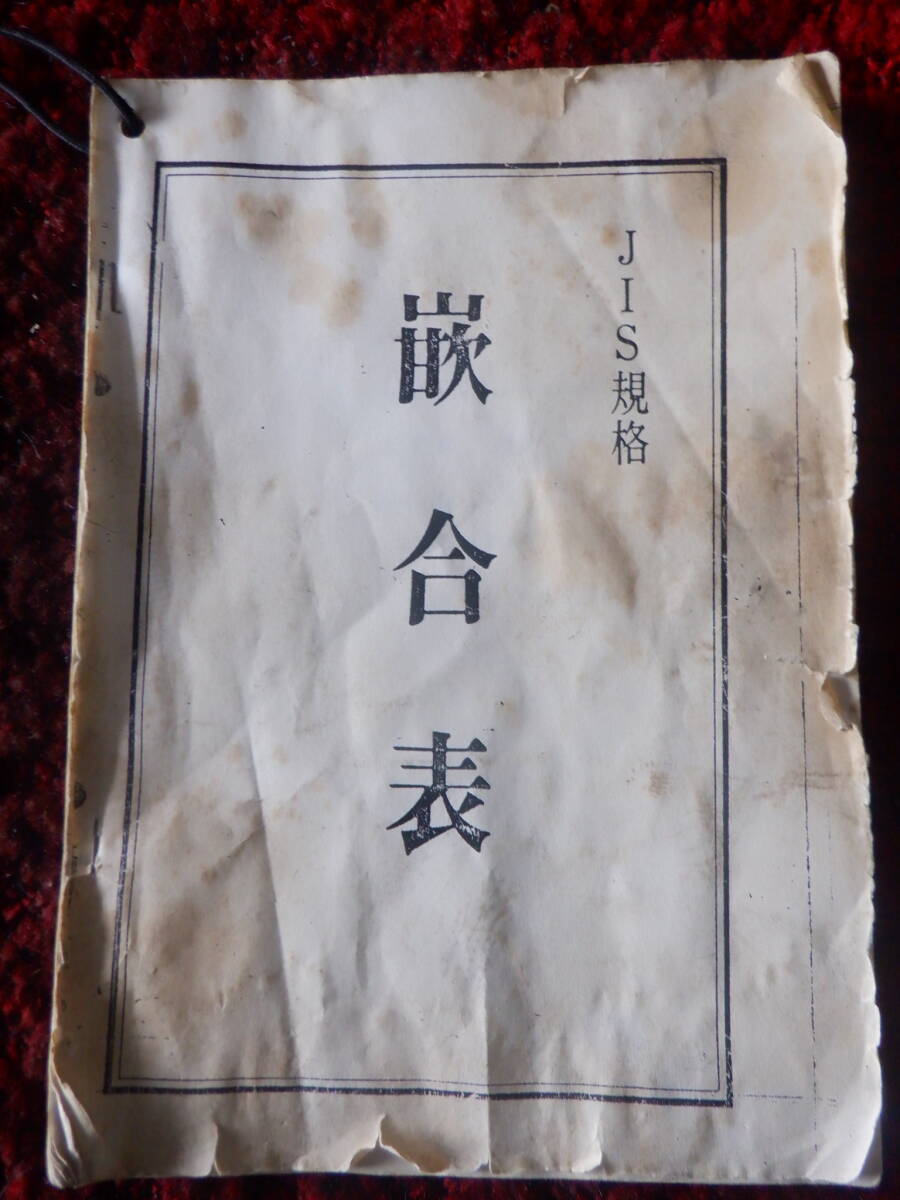 JIS規格
嵌合表